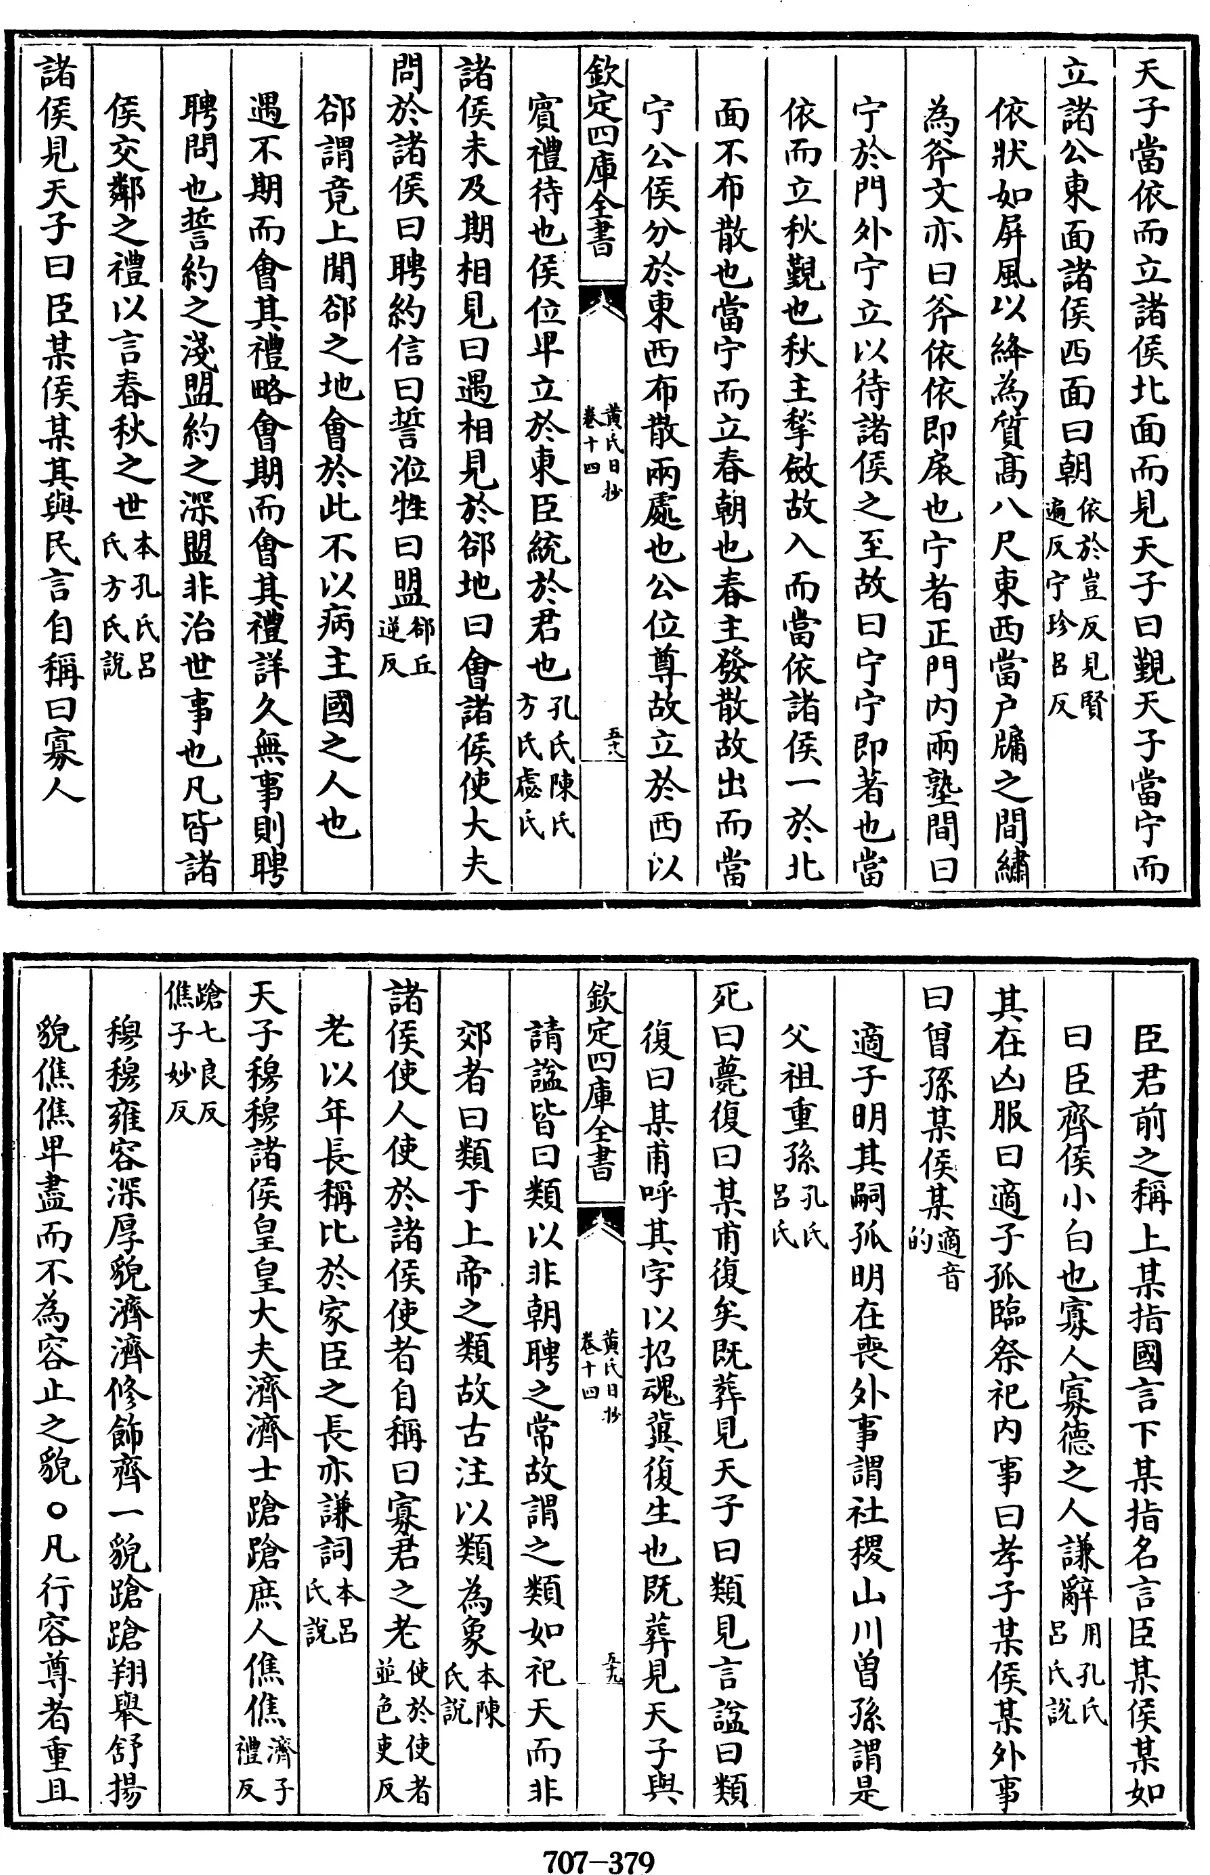 天子當依而立諸侯北面而見天子曰覲天子當宁而
立諸公東面諸侯西面曰朝依於豈反見賢遍反宁珍呂反
依狀如屏風以絳為質高八尺東西當户牖之間繡
為斧文亦曰斧依依即扆也宁者正門内兩塾間曰
宁於門外宁立以待諸侯之至故曰宁宁即著也當
依而立秋覲也秋主揫斂故入而當依諸侯一於北
面不布散也當宁而立春朝也春主發散故出而當
宁公侯分於東西布散兩處也公位尊故立於西以
欽定四庫全書
黄氏日抄
卷十四
五十八
賓禮待也侯位卑立於東臣統於君也孔氏陳氏方氏應氏
諸侯未及期相見曰遇相見於郤地曰會諸侯使大夫
問於諸侯曰聘約信曰誓涖牲曰盟郤丘逆反
郤謂竟上閒郤之地會於此不以病主國之人也
遇不期而會其禮略會期而會其禮詳久無事則聘
聘問也誓約之淺盟約之深盟非治世事也凡皆諸
侯交鄰之禮以言春秋之世本孔氏吕氏方氏說
諸侯見天子曰臣某侯某其與民言自稱曰寡人
臣君前之稱上某指國言下某指名言臣某侯某如
曰臣齊侯小白也寡人寡德之人謙辭用孔氏吕氏說
其在凶服曰適子孤臨祭祀内事曰孝子某侯某外事
曰曾孫某侯某適音的
適子明其嗣孤明在喪外事謂社稷山川曽孫謂是
父祖重孫孔氏吕氏
死曰薨復曰某甫復矣既葬見天子曰類見言諡曰類
復曰某甫呼其字以招魂冀復生也既葬見天子與
欽定四庫全書
黄氏日抄
卷十四
五十九
請諡皆曰類以非朝聘之常故謂之類如祀天而非
郊者曰類于上帝之類故古注以類為象本陳氏說
諸侯使人使於諸侯使者自稱曰寡君之老使於使者並色吏反
老以年長稱比於家臣之長亦謙詞本吕氏說
天子穆穆諸侯皇皇大夫濟濟士蹌蹌庶人僬僬濟子禮反
蹌七良反僬子妙反
穆穆雍容深厚貌濟濟修飾齊一貌蹌蹌翔舉舒揚
貌僬僬卑盡而不為容止之貌○凡行容尊者重且
707-379